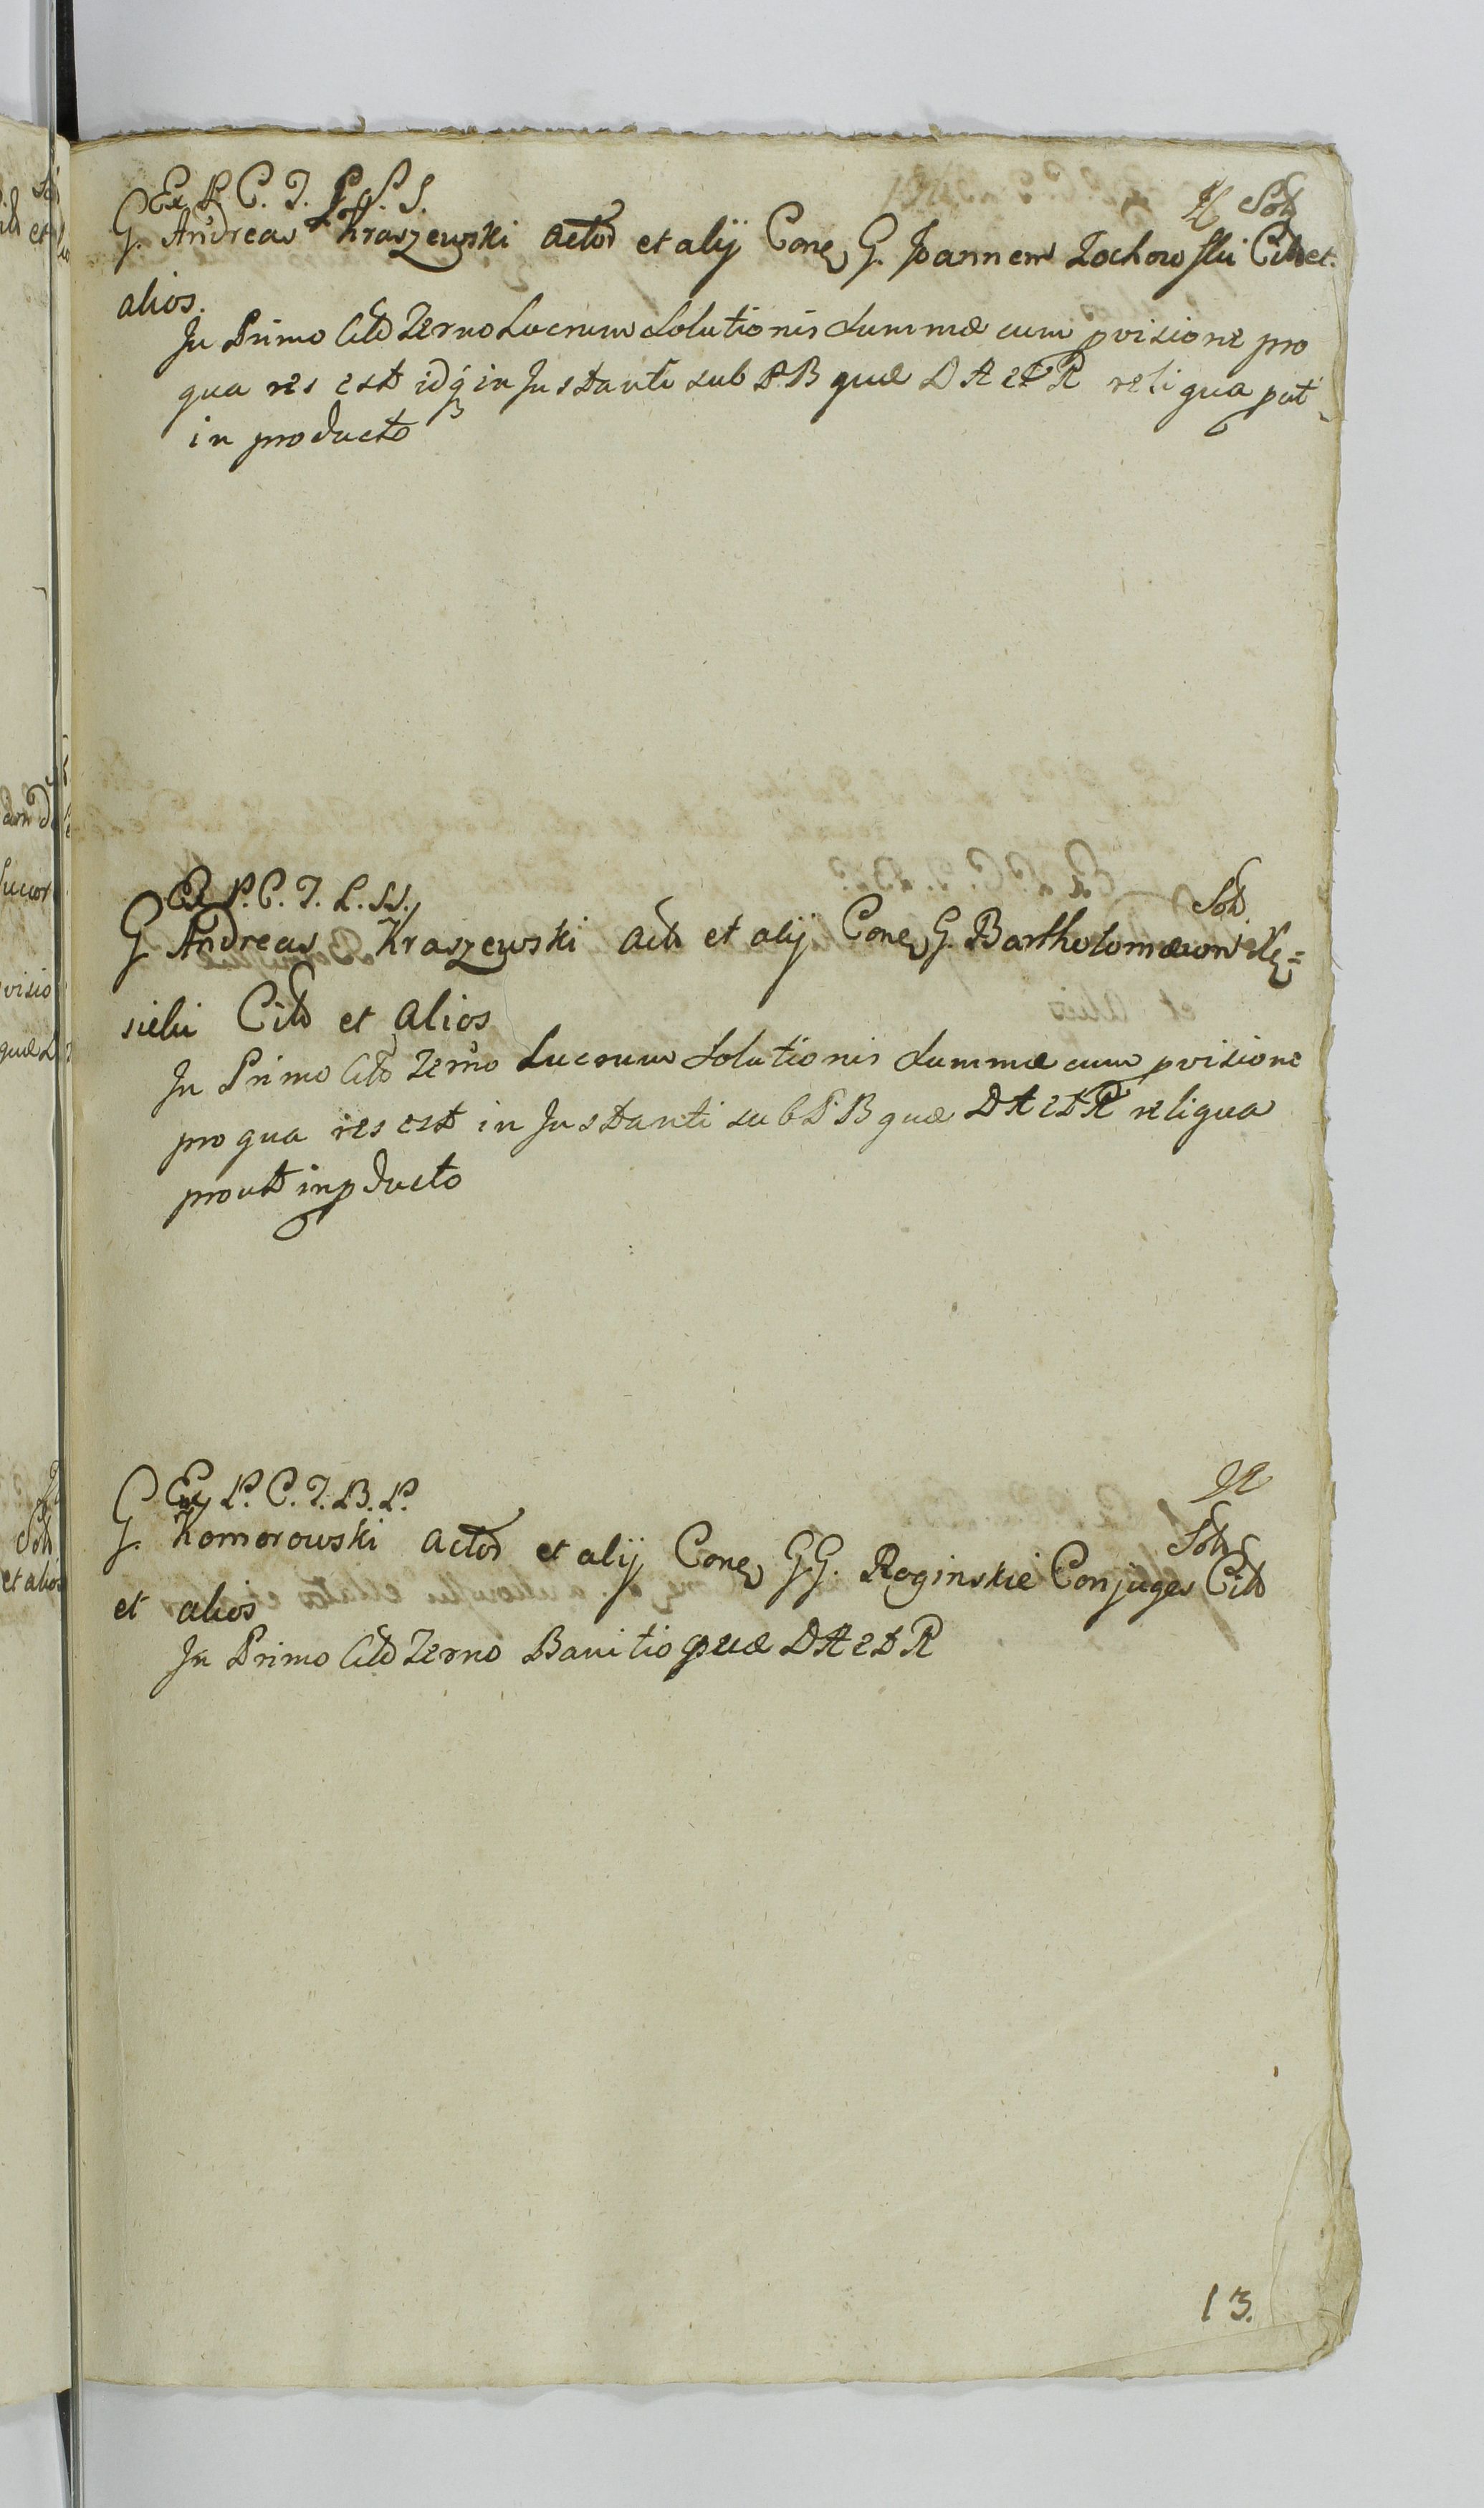 Ex P. C. T. L. S. S. Sol
G. Andreas Kraszewski Actor et alij Cone G. Joannem Zochowski Citt et
alios.
In Primo Citto Termo Lucrum Solutionis Summæ cum pvisione pro
qua res est idq in Instanti sub P. B quæ D A et R reliqua put
in producto
Ex P. C. T. L. S. Sol
G Andreas Kraszewski Act et alij Cone G. Bartholomæum Ky=
sielii Citt et alios
In Primo Citto Termo Lucrum Solutionis Summæ cum pvisione
pro qua res est in Instanti sub P. B quæ D A et R reliqua
prout in pducto
Ex P. C. T. B. P. N
Sol
G. Komorowski Actor et alij Cone GG. Roginskie Conjuges Citt
et alios
In Primo Citto Termo Banitio quæ D A et R
13.